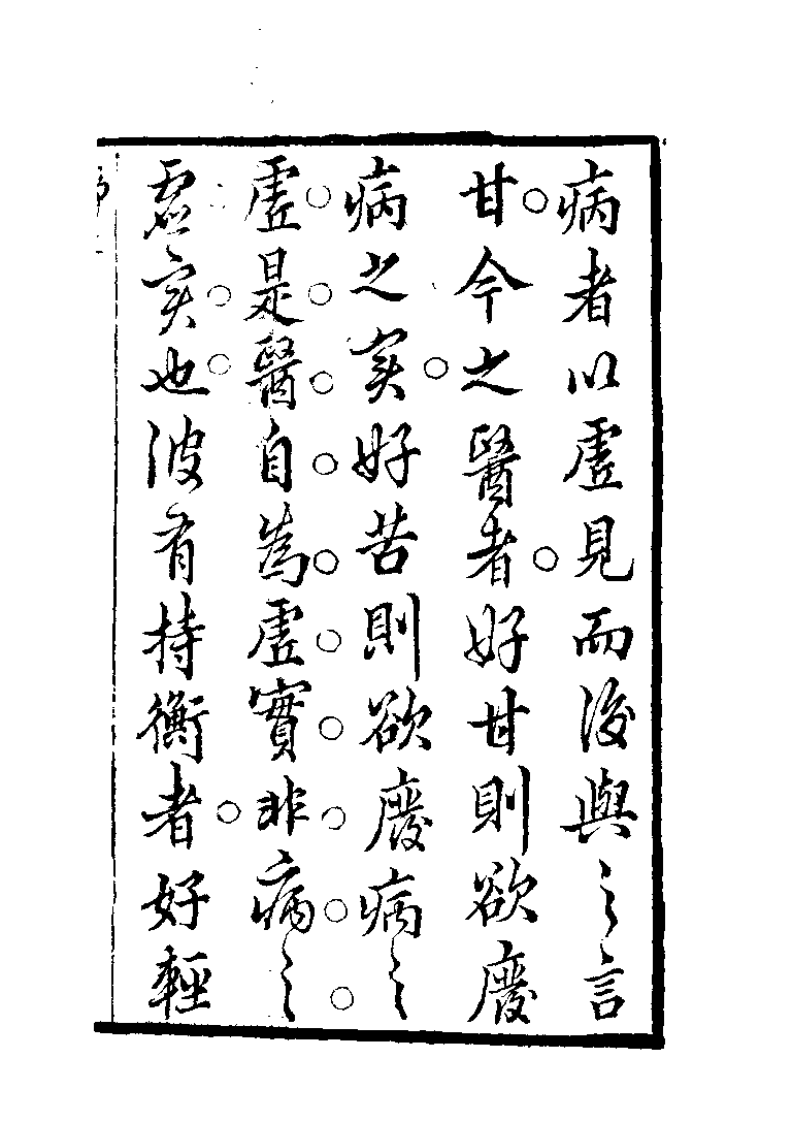 病者以虛見而後與之言
甘今之醫者好甘則欲廢
病之实好苦則欲廢病之
虛是醫自為虛實非病之
虛实也彼有持衡者好輕